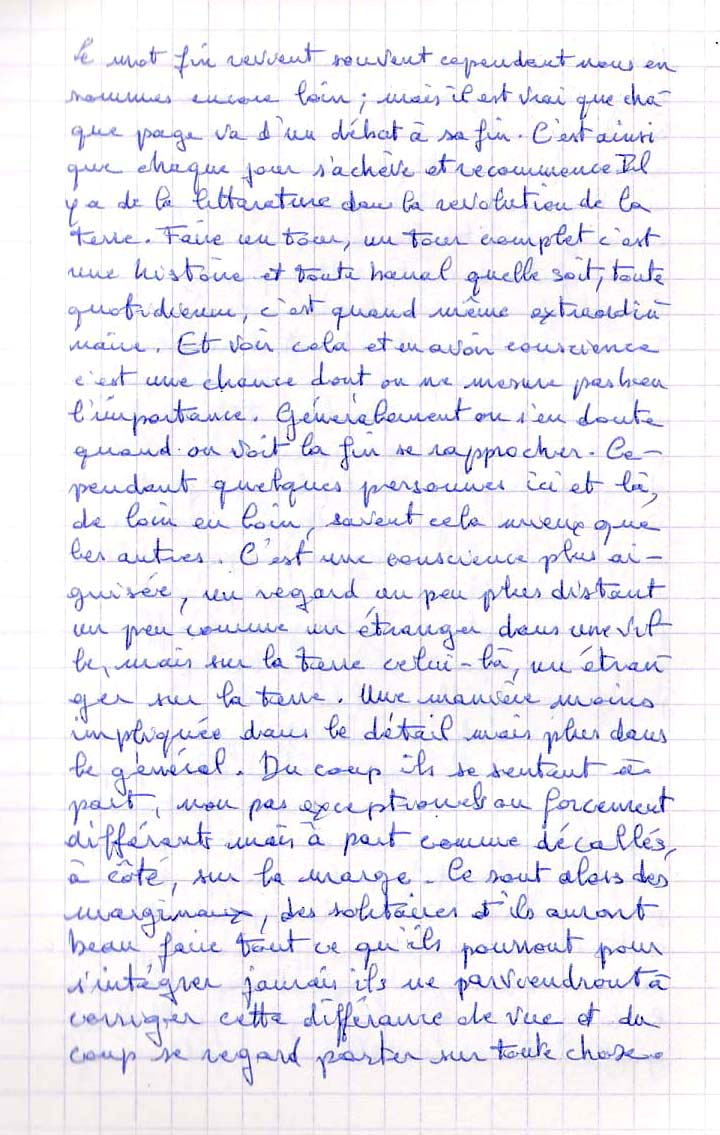 le mot fin revient souvent cependant nous en
sommes encore loin ; mais il est vrai que cha-
que page va d'un début à sa fin. C'est ainsi
que chaque jour s'achève et recommence Il
y a de la litterature dans la revolution de la
terre. Faire un tour, un tour complet c'est
une histoire et toute banal quelle soit, toute
quotidienne, c'est quand même extraordi-
naire. Et voir cela et en avoir conscience
c'est une chance dont on ne mesure pas bien
l'importance. Généralement on s'en doute
quand on voit la fin se rapprocher. Ce-
pendant quelques personnes ici et là,
de loin en loin, savent cela mieux que
les autres. C'est une conscience plus ai-
guisée, un regard un peu plus distant
un peu comme un étranger dans une vil-
le, mais sur la terre celui-là, un étran-
ger sur la terre. Une manière moins
impliquée dans le détail mais plus dans
le général. Du coup ils se sentent à
part, non pas exceptionnels ou forcement
différents mais à part comme décallés,
à côté, sur la marge. Ce sont alors des
marginaux, des solitaires et ils auront
beau faire tout ce qu'ils pourront pour
s'intégrer jamais ils ne parviendront à
corriger cette différance de vue et du
coup se regard porter sur toute chose.